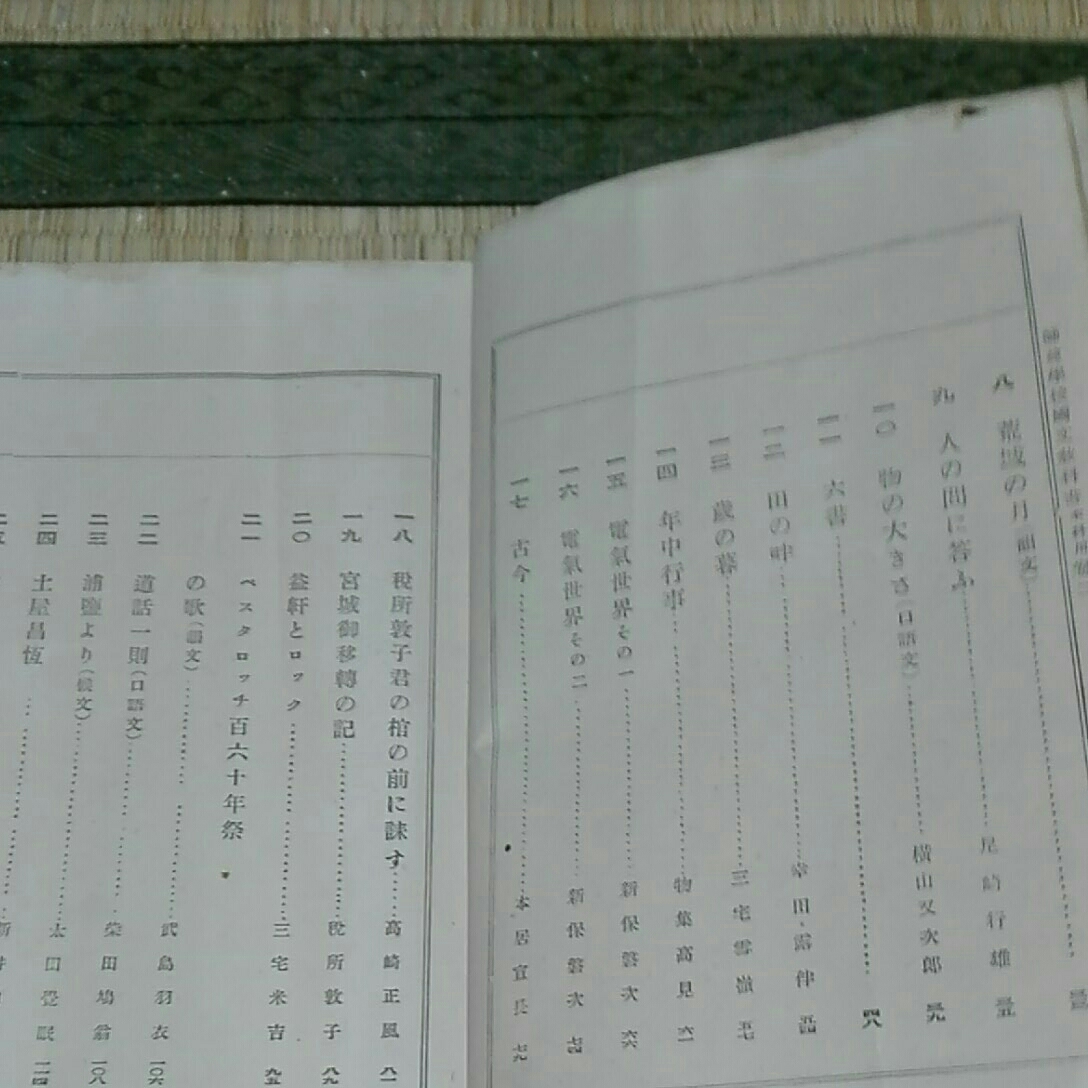 師範學校國文敎科書本科用卷
八 荒城の月(韻文)
九 人の問に答ふ 尾崎行雄 三五
一〇 物の大きさ(口語文) 橫山又次郎 三九
一一 六書 四八
一二 田の畔 幸田露伴 五四
一三 歲の暮 三宅雪嶺 五七
一四 年中行事 物集高見 六一
一五 電氣世界その一 新保磐次 六六
一六 電氣世界その二 新保磐次 七四
一七 古今 本居宣長 七九
一八 稅所敦子君の棺の前に誄す 高崎正風 八一
一九 宮城御移轉の記 稅所敦子 八九
二〇 益軒とロック 三宅米吉 九五
二一 ペスタロッチ百六十年祭
の歌(韻文) 武島羽衣 一〇六
二二 道話一則(口語文) 柴田鳩翁 一〇八
二三 浦鹽より(候文) 太田覺眠
二四 土屋昌恆 新井
二五